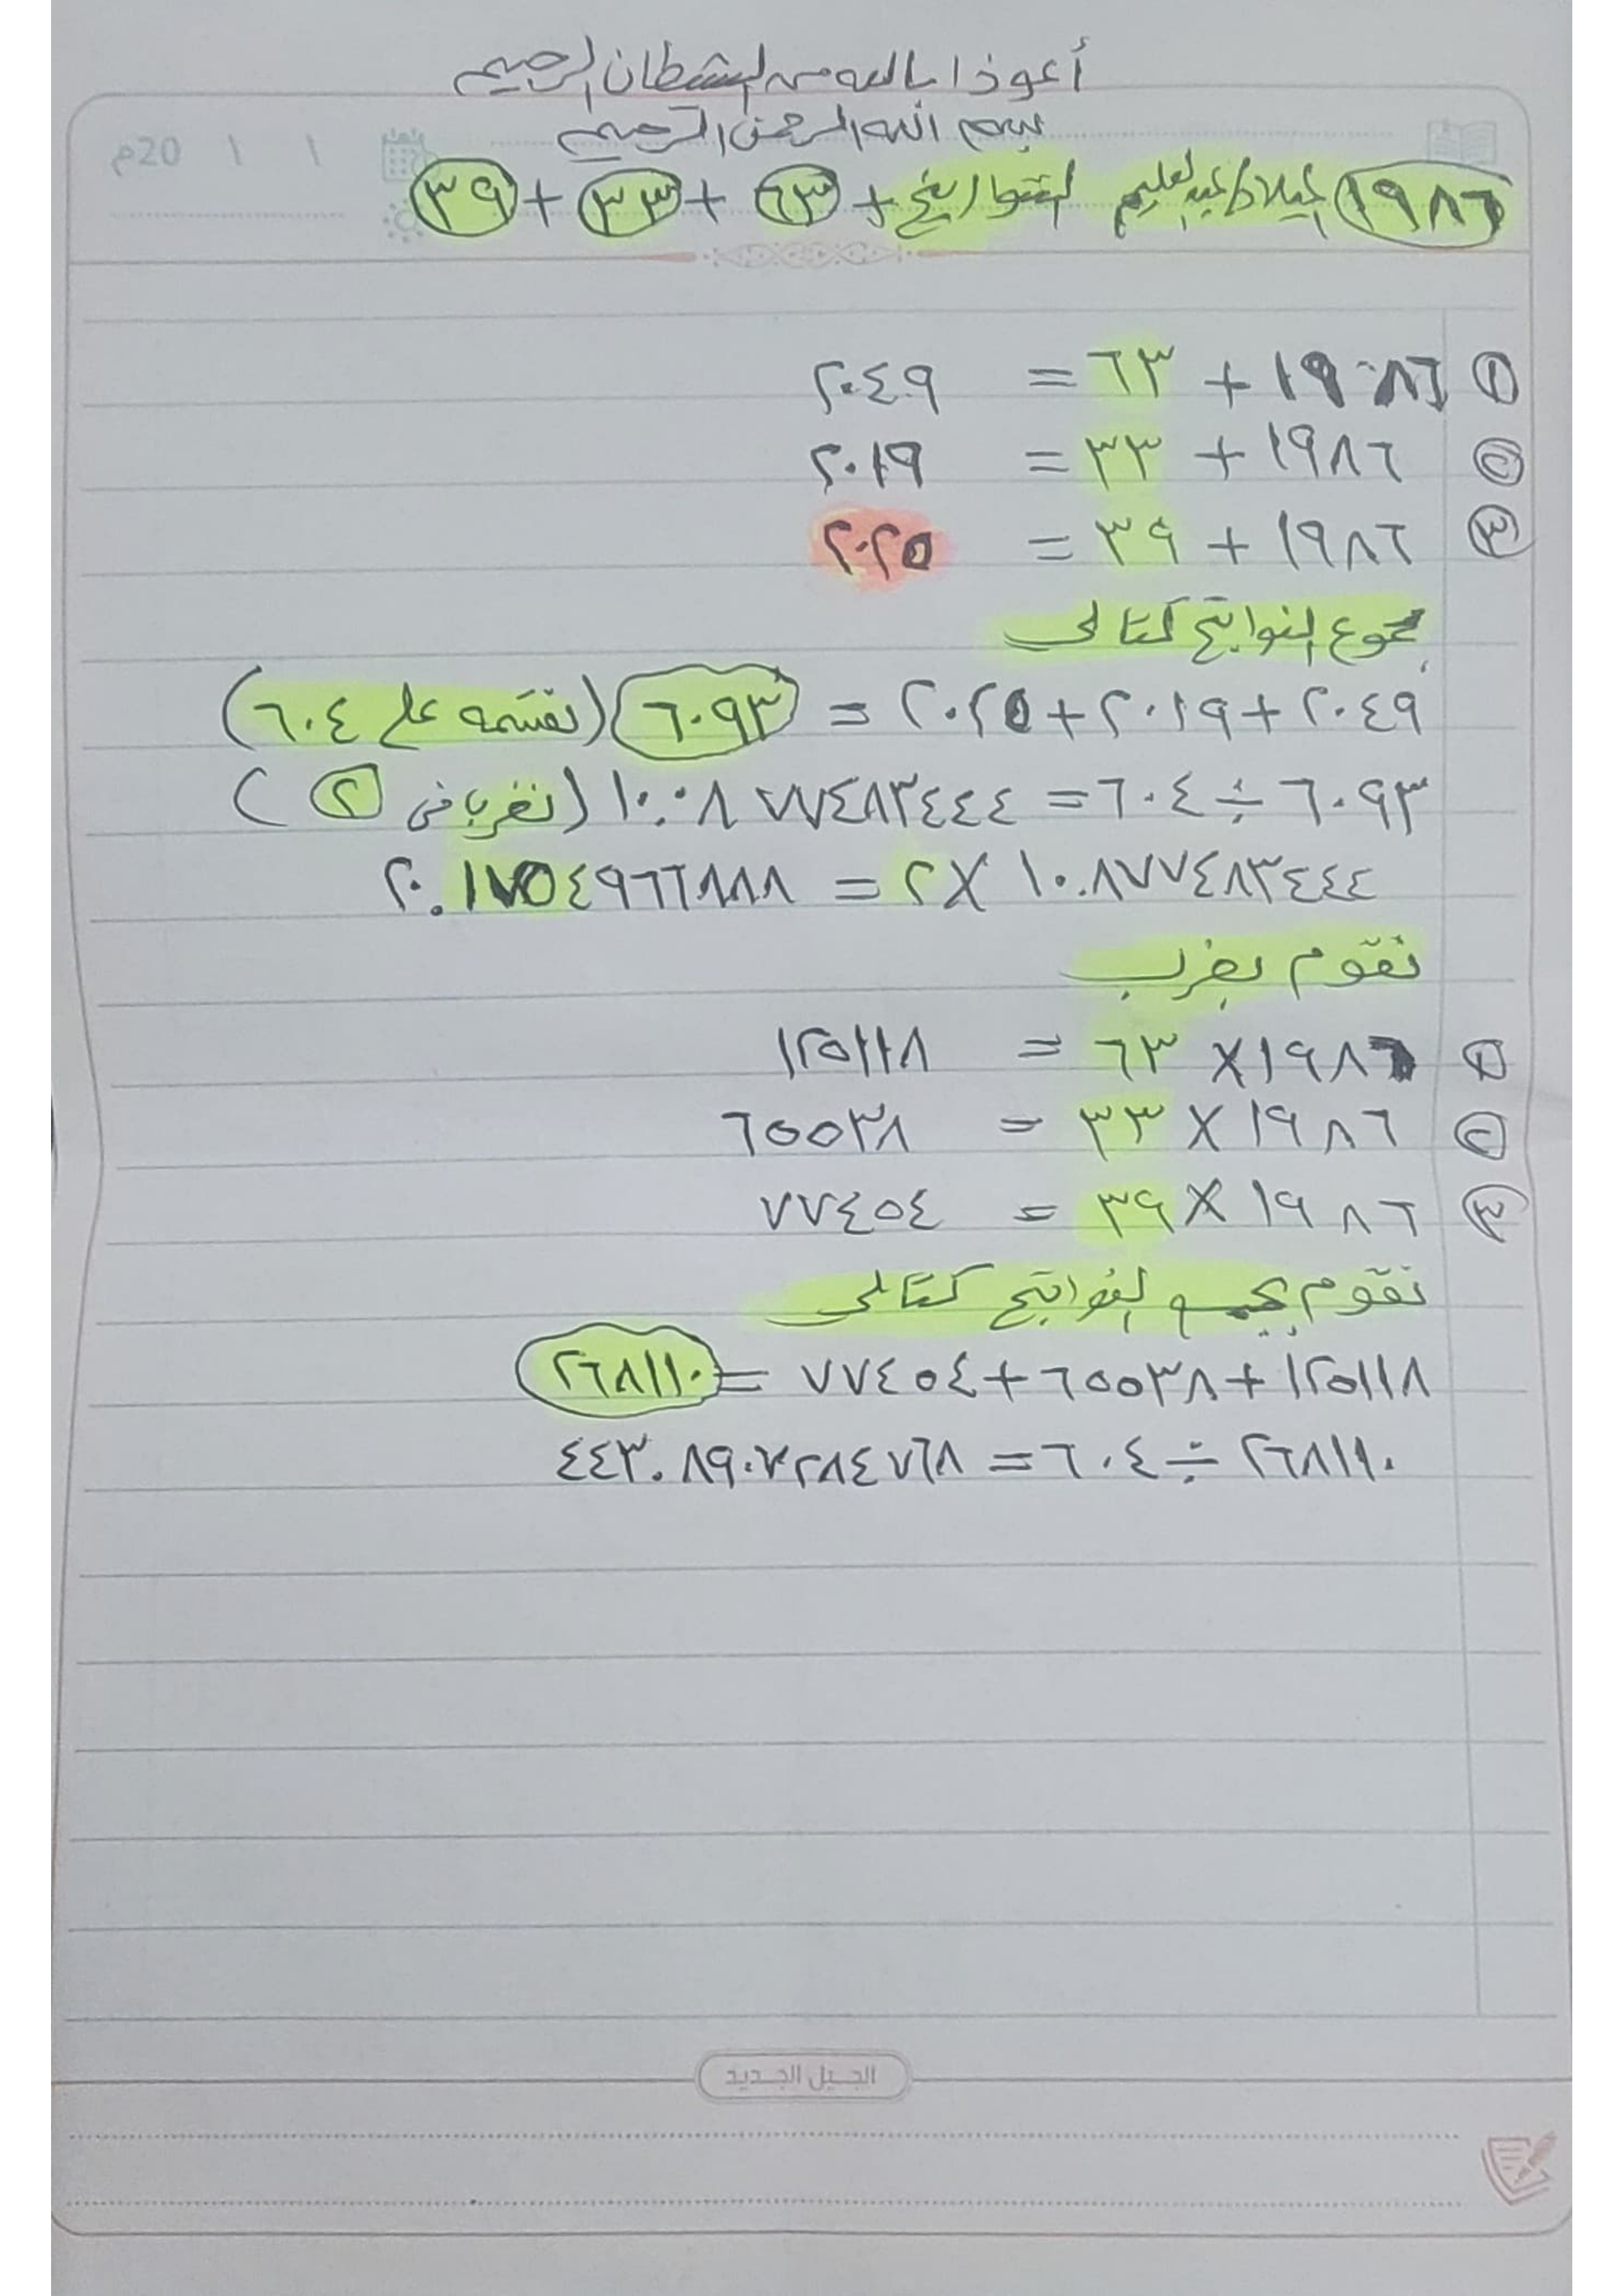 أعوذ بالله من الشطان الرجيم
بسم الله الرحمن الرحيم
20م
١٩٨٦ ميلاد/عبدالعليم التواريخ + ٦٣ + ٣٣ + ٣٩
١ ١٩٨٦ + ٦٣ = ٢٠٤٩
٢ ١٩٨٦ + ٣٣ = ٢٠١٩
٣ ١٩٨٦ + ٣٩ = ٢٠٢٥
مجموع النواتج كتالى
٢٠٤٩ + ٢٠١٩ + ٢٠٢٥ = ٦٠٩٣ (نقسمه على ٦٠٤)
٦٠٩٣ ÷ ٦٠٤ = ١٠.٠٨٧٧٤٨٣٤٤٤ (نضربا فى ٢)
١٠.٨٧٧٤٨٣٤٤٤ × ٢ = ٢٠.١٧٥٤٩٦٦٨٨٨
نقوم بضرب
١ ١٩٨٦ × ٦٣ = ١٢٥١١٨
٢ ١٩٨٦ × ٣٣ = ٦٥٥٣٨
٣ ١٩٨٦ × ٣٩ = ٧٧٤٥٤
نقوم بجمع النواتج كتالى
١٢٥١١٨ + ٦٥٥٣٨ + ٧٧٤٥٤ = ٢٦٨١١٠
٢٦٨١١٠ ÷ ٦٠٤ = ٤٤٣.٨٩٠٧٢٨٤٧٦٨
الجيل الجديد